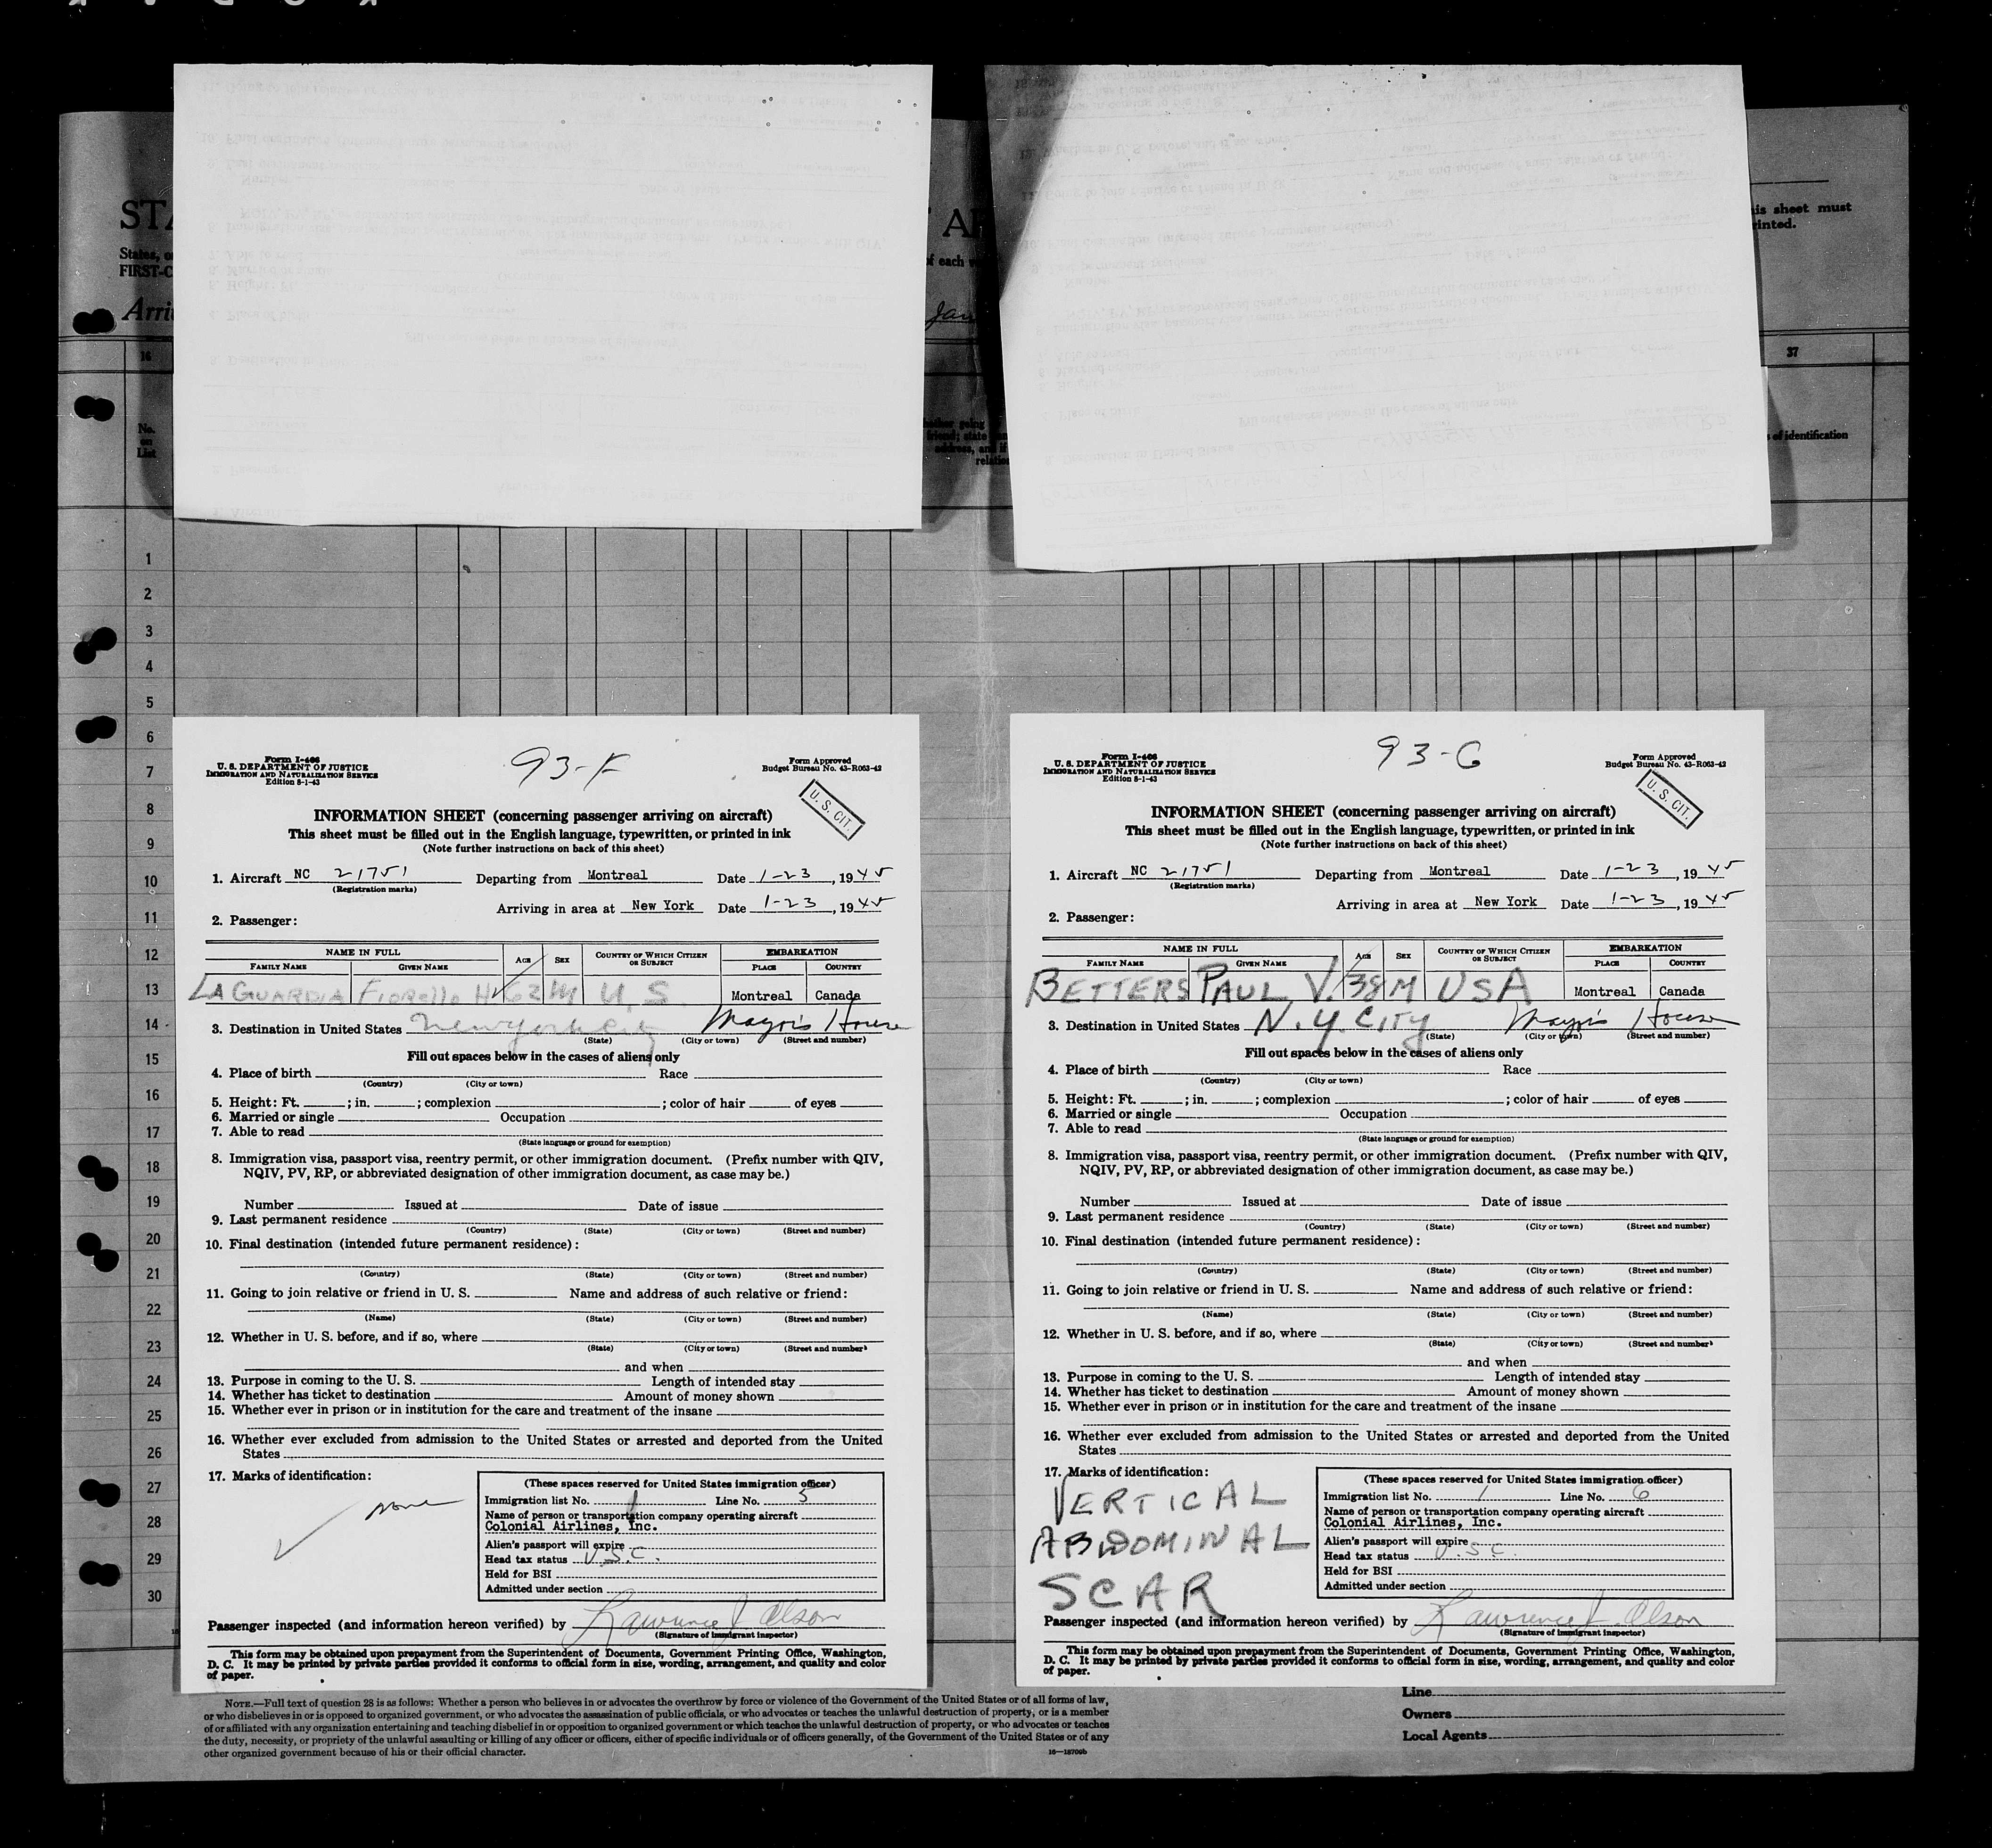 STA
T AR
his sheet must
rinted.
States, o
f each v
FIRST-C
Arri
Jan
16
37
No.
on
List
friend; state
address, and if
relatio
s of identification
1
2
3
4
5
6
7
8
9
10
11
12
13
14
15
16
17
18
19
20
21
22
23
24
25
26
27
28
29
30
93-F
Form I-466
U. S. DEPARTMENT OF JUSTICE
IMMIGRATION AND NATURALIZATION SERVICE
Edition 8-1-43
Form Approved
Budget Bureau No. 43-R063-42
U. S. CIT.
INFORMATION SHEET (concerning passenger arriving on aircraft)
This sheet must be filled out in the English language, typewritten, or printed in ink
(Note further instructions on back of this sheet)
1. Aircraft NC 21751 Departing from Montreal Date 1-23, 1945
(Registration marks)
Arriving in area at New York Date 1-23, 1945
2. Passenger:
NAME IN FULL AGE SEX COUNTRY OF WHICH CITIZEN OR SUBJECT EMBARKATION
FAMILY NAME GIVEN NAME PLACE COUNTRY
LA GUARDIA Fiorello H 62 M U.S. Montreal Canada
3. Destination in United States New York City Mayor's House
(State) (City or town) (Street and number)
Fill out spaces below in the cases of aliens only
4. Place of birth Race
(Country) (City or town)
5. Height: Ft. ; in. ; complexion ; color of hair of eyes
6. Married or single Occupation
7. Able to read
(State language or ground for exemption)
8. Immigration visa, passport visa, reentry permit, or other immigration document. (Prefix number with QIV,
NQIV, PV, RP, or abbreviated designation of other immigration document, as case may be.)
Number Issued at Date of issue
9. Last permanent residence
(Country) (State) (City or town) (Street and number)
10. Final destination (intended future permanent residence):
(Country) (State) (City or town) (Street and number)
11. Going to join relative or friend in U. S. Name and address of such relative or friend:
(Name) (State) (City or town) (Street and number)
12. Whether in U. S. before, and if so, where
(State) (City or town) (Street and number)
and when
13. Purpose in coming to the U. S. Length of intended stay
14. Whether has ticket to destination Amount of money shown
15. Whether ever in prison or in institution for the care and treatment of the insane
16. Whether ever excluded from admission to the United States or arrested and deported from the United
States
17. Marks of identification:
none
(These spaces reserved for United States immigration officer)
Immigration list No. 1 Line No. 5
Name of person or transportation company operating aircraft
Colonial Airlines, Inc.
Alien's passport will expire
Head tax status U.S.C.
Held for BSI
Admitted under section
Passenger inspected (and information hereon verified) by Lawrence J. Olson
(Signature of immigrant inspector)
This form may be obtained upon prepayment from the Superintendent of Documents, Government Printing Office, Washington,
D. C. It may be printed by private parties provided it conforms to official form in size, wording, arrangement, and quality and color
of paper.
93-G
Form I-466
U. S. DEPARTMENT OF JUSTICE
IMMIGRATION AND NATURALIZATION SERVICE
Edition 8-1-43
Form Approved
Budget Bureau No. 43-R063-42
U. S. CIT.
INFORMATION SHEET (concerning passenger arriving on aircraft)
This sheet must be filled out in the English language, typewritten, or printed in ink
(Note further instructions on back of this sheet)
1. Aircraft NC 21751 Departing from Montreal Date 1-23, 1945
(Registration marks)
Arriving in area at New York Date 1-23, 1945
2. Passenger:
NAME IN FULL AGE SEX COUNTRY OF WHICH CITIZEN OR SUBJECT EMBARKATION
FAMILY NAME GIVEN NAME PLACE COUNTRY
BETTERS PAUL V. 38 M USA Montreal Canada
3. Destination in United States N.Y. CITY Mayor's House
(State) (City or town) (Street and number)
Fill out spaces below in the cases of aliens only
4. Place of birth Race
(Country) (City or town)
5. Height: Ft. ; in. ; complexion ; color of hair of eyes
6. Married or single Occupation
7. Able to read
(State language or ground for exemption)
8. Immigration visa, passport visa, reentry permit, or other immigration document. (Prefix number with QIV,
NQIV, PV, RP, or abbreviated designation of other immigration document, as case may be.)
Number Issued at Date of issue
9. Last permanent residence
(Country) (State) (City or town) (Street and number)
10. Final destination (intended future permanent residence):
(Country) (State) (City or town) (Street and number)
11. Going to join relative or friend in U. S. Name and address of such relative or friend:
(Name) (State) (City or town) (Street and number)
12. Whether in U. S. before, and if so, where
(State) (City or town) (Street and number)
and when
13. Purpose in coming to the U. S. Length of intended stay
14. Whether has ticket to destination Amount of money shown
15. Whether ever in prison or in institution for the care and treatment of the insane
16. Whether ever excluded from admission to the United States or arrested and deported from the United
States
17. Marks of identification:
VERTICAL
ABDOMINAL
SCAR
(These spaces reserved for United States immigration officer)
Immigration list No. 1 Line No. 6
Name of person or transportation company operating aircraft
Colonial Airlines, Inc.
Alien's passport will expire
Head tax status U.S.C.
Held for BSI
Admitted under section
Passenger inspected (and information hereon verified) by Lawrence J. Olson
(Signature of immigrant inspector)
This form may be obtained upon prepayment from the Superintendent of Documents, Government Printing Office, Washington,
D. C. It may be printed by private parties provided it conforms to official form in size, wording, arrangement, and quality and color
of paper.
NOTE.—Full text of question 28 is as follows: Whether a person who believes in or advocates the overthrow by force or violence of the Government of the United States or of all forms of law,
or who disbelieves in or is opposed to organized government, or who advocates the assassination of public officials, or who advocates or teaches the unlawful destruction of property, or is a member
of or affiliated with any organization entertaining and teaching disbelief in or opposition to organized government or which teaches the unlawful destruction of property, or who advocates or teaches
the duty, necessity, or propriety of the unlawful assaulting or killing of any officer or officers, either of specific individuals or of officers generally, of the Government of the United States or of any
other organized government because of his or their official character.
16—18700b
Line
Owners
Local Agents